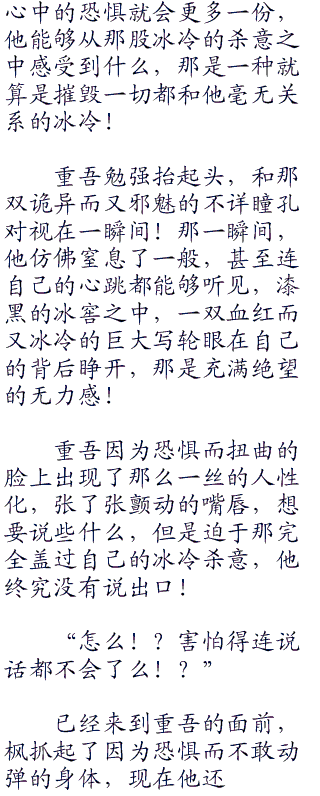 心中的恐惧就会更多一份，
他能够从那股冰冷的杀意之
中感受到什么，那是一种就
算是摧毁一切都和他毫无关
系的冰冷！
重吾勉强抬起头，和那
双诡异而又邪魅的不详瞳孔
对视在一瞬间！那一瞬间，
他仿佛窒息了一般，甚至连
自己的心跳都能够听见，漆
黑的冰窖之中，一双血红而
又冰冷的巨大写轮眼在自己
的背后睁开，那是充满绝望
的无力感！
重吾因为恐惧而扭曲的
脸上出现了那么一丝的人性
化，张了张颤动的嘴唇，想
要说些什么，但是迫于那完
全盖过自己的冰冷杀意，他
终究没有说出口！
“怎么！？害怕得连说
话都不会了么！？”
已经来到重吾的面前，
枫抓起了因为恐惧而不敢动
弹的身体，现在他还